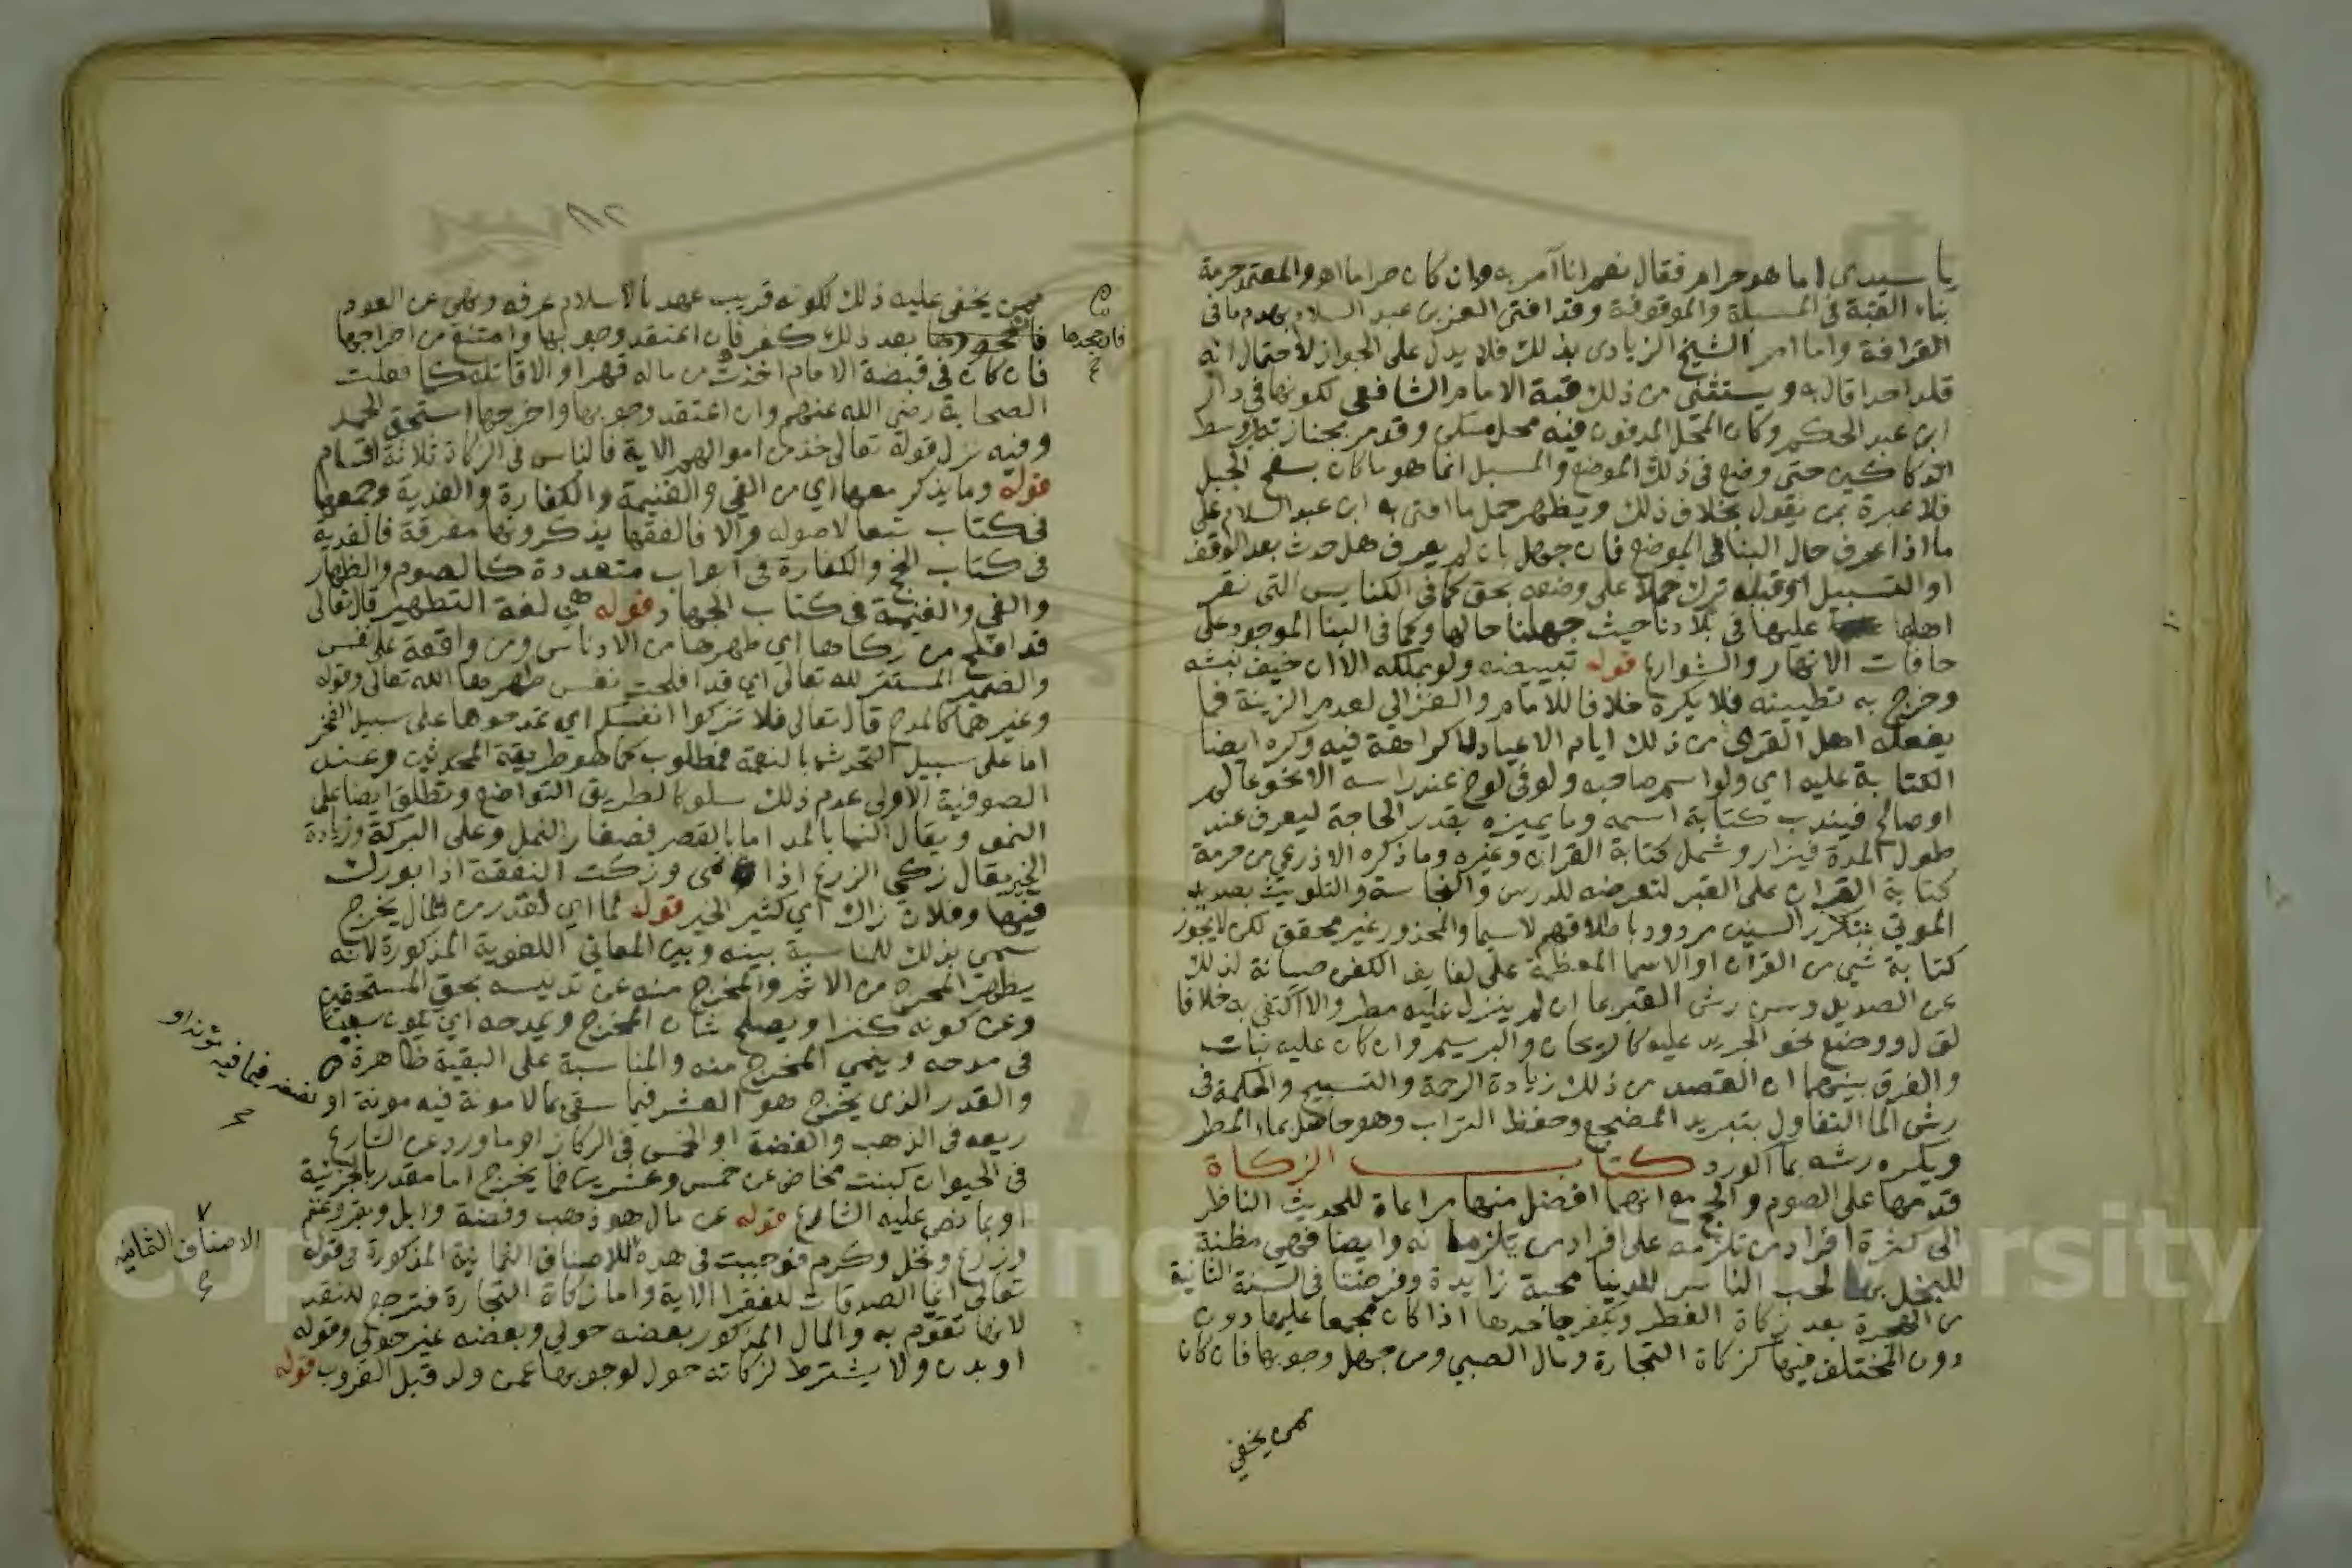 يا سيدي اما هو حرام فقال نعم انا آمر به وان كان حراما اه والمعتمد حرمة
بناء القبة في المسبلة والموقوفة وقد افتى العز بن عبد السلام بهدم ما في
القرافة واما امر الشيخ الزيادي بذلك فلا يدل على الجواز لاحتمال انه
قلد احدا قال به ويستثنى من ذلك قبة الامام الشافعي لكونها في دار
ابن عبد الحكم وكان المحل المدفون فيه محل سكن وقد مر بجنازته وسط
الدكاكين حتى وضع في ذلك الموضع والمسبل انما هو ما كان بسفح الجبل
فلا عبرة بمن يقول بخلاف ذلك ويظهر حمل ما افتى به ابن عبد السلام على
ما اذا عرف حال البنا في الموضع فان جهل بان لم يعرف هل حدث بعد الوقف
او التسبيل او قبله ترك حملا على وضعه بحق كما في الكنايس التي نقر
اهلها عليها في بلادنا حيث جهلنا حالها وكما في البنا الموجود على
حافات الانهار والشوارع قوله تبييضه ولو بملكه الا ان خيف نبشه
وخرج به تطيينه فلا يكره خلافا للامام والغزالي لعدم الزينة فما
يفعله اهل القرى من ذلك ايام الاعياد لا كراهة فيه وكره ايضا
الكتابة عليه اي ولو اسم صاحبه ولو في لوح عند راسه الا نحو عالم
او صالح فيندب كتابة اسمه وما يميزه بقدر الحاجة ليعرف عند
طول المدة فيزار وشمل كتابة القران وغيره وما ذكره الاذرعي من حرمة
كتابة القران على القبر لتعرضه للدرس والنجاسة والتلويث بصديد
الموتى بتكرر السنين مردود باطلاقهم لاسيما والمحذور غير محقق لكن لا يجوز
كتابة شي من القران او الاسما المعظمة على لفايف الكفن صيانة لذلك
عن الصديد وسن رش القبر بما ان لم ينزل عليه مطر والا اكتفي به خلافا
لق ل ووضع نحو الجريد عليه كالريحان والبرسيم وان كان عليه نبات
والفرق بينهما ان القصد من ذلك زيادة الرحمة والتسبيح والحكمة في
رش الما التفاول بتبريد المضجع وحفظ التراب وهو حاصل بماء المطر
ويكره رشه بما الورد كتاب الزكاة
قدمها على الصوم والحج مع انهما افضل منها مراعاة للحديث الناظر
الى كثرة افراد من تلزمه على افراد من يلزمانه وايضا فهي مظنة
للبخل بها لحب الناس للدنيا محبة زايدة وفرضت في السنة الثانية
من الهجرة بعد زكاة الفطر ويكفر جاحدها اذا كان مجمعا عليها دون
دون المختلف فيها كزكاة التجارة ومال الصبي ومن جهل وجوبها فان كان
ممن يخفى
ممن يخفى عليه ذلك لكونه قريب عهد بالاسلام عرفه ونهي عن العود
فان جحدها
بعد ذلك كفر فان اعتقد وجوبها وامتنع من اخراجها
فان كان في قبضة الامام اخذت من ماله قهرا والا قاتله كما فعلت
الصحابة رضي الله عنهم وان اعتقد وجوبها واخرجها استحق الحمد
وفيه نزل قوله تعالى خذ من اموالهم الاية فالناس في الزكاة ثلاثة اقسام
قوله وما يذكر معها اي من الفي والغنيمة والكفارة والفدية وجمعها
في كتاب تبعا لاصوله والا فالفقها يذكرونها مفرقة فالفدية
في كتاب الحج والكفارة في ابواب متعددة كالصوم والظهار
والفي والغنيمة في كتاب الجهاد قوله هي لغة التطهير قال تعالى
قد افلح من زكاها اي طهرها من الادناس ومن واقعة على نفس
والضمير المستتر لله تعالى اي قد افلحت نفس طهرها الله تعالى وقوله
وغيرهما كالمدح قال تعالى فلا تزكوا انفسكم اي تمدحوها على سبيل الفخر
اما على سبيل التحدث بالنعمة فمطلوب كما هو طريقة المحدثين وعند
الصوفية الاولى عدم ذلك سلوكا لطريق التواضع وتطلق ايضا على
النمو ويقال النما بالمد اما بالقصر فصغار النمل وعلى البركة وزيادة
الخير يقال زكى الزرع اذا نمى وزكت النفقة اذا بورك
فيها وفلان زاك اي كثير الخير قوله لما اي لقدر من مال يخرج
سمي بذلك للمناسبة بينه وبين المعاني اللغوية المذكورة لانه
يطهر المخرج من الاثم والمخرج منه عن تدنيسه بحق المستحقين
وعن كونه كنزا ويصلح شان المخرج ويمدحه اي يكون سببا
في مدحه وينمي المخرج منه والمناسبة على البقية ظاهرة
والقدر الذي يخرج هو العشر فيما سقي بما لا مونة فيه مونة او
نصفه فيما فيه مونة او
ربعه في الذهب والفضة او الخمس في الركاز او ما ورد عن الشارع
في الحيوان كبنت مخاض عن خمس وعشرين فما يخرج اما مقدر بالجزئية
او بما نص عليه الشارع قوله عن مال هو ذهب وفضة وابل وبقر وغنم
وزرع ونخل وكرم فوجبت في هذه الاصناف الثمانية المذكورة في قوله
الاصناف الثمانية
تعالى انما الصدقات للفقرا الاية واما زكاة التجارة فترجع للنقد
لانها تقوم به والمال المذكور بعضه حولي وبعضه غير حولي وقوله
او بدن ولا يشترط لزكاته حول لوجوبها عمن ولد قبل الغروب قوله
Copyright © King Saud University